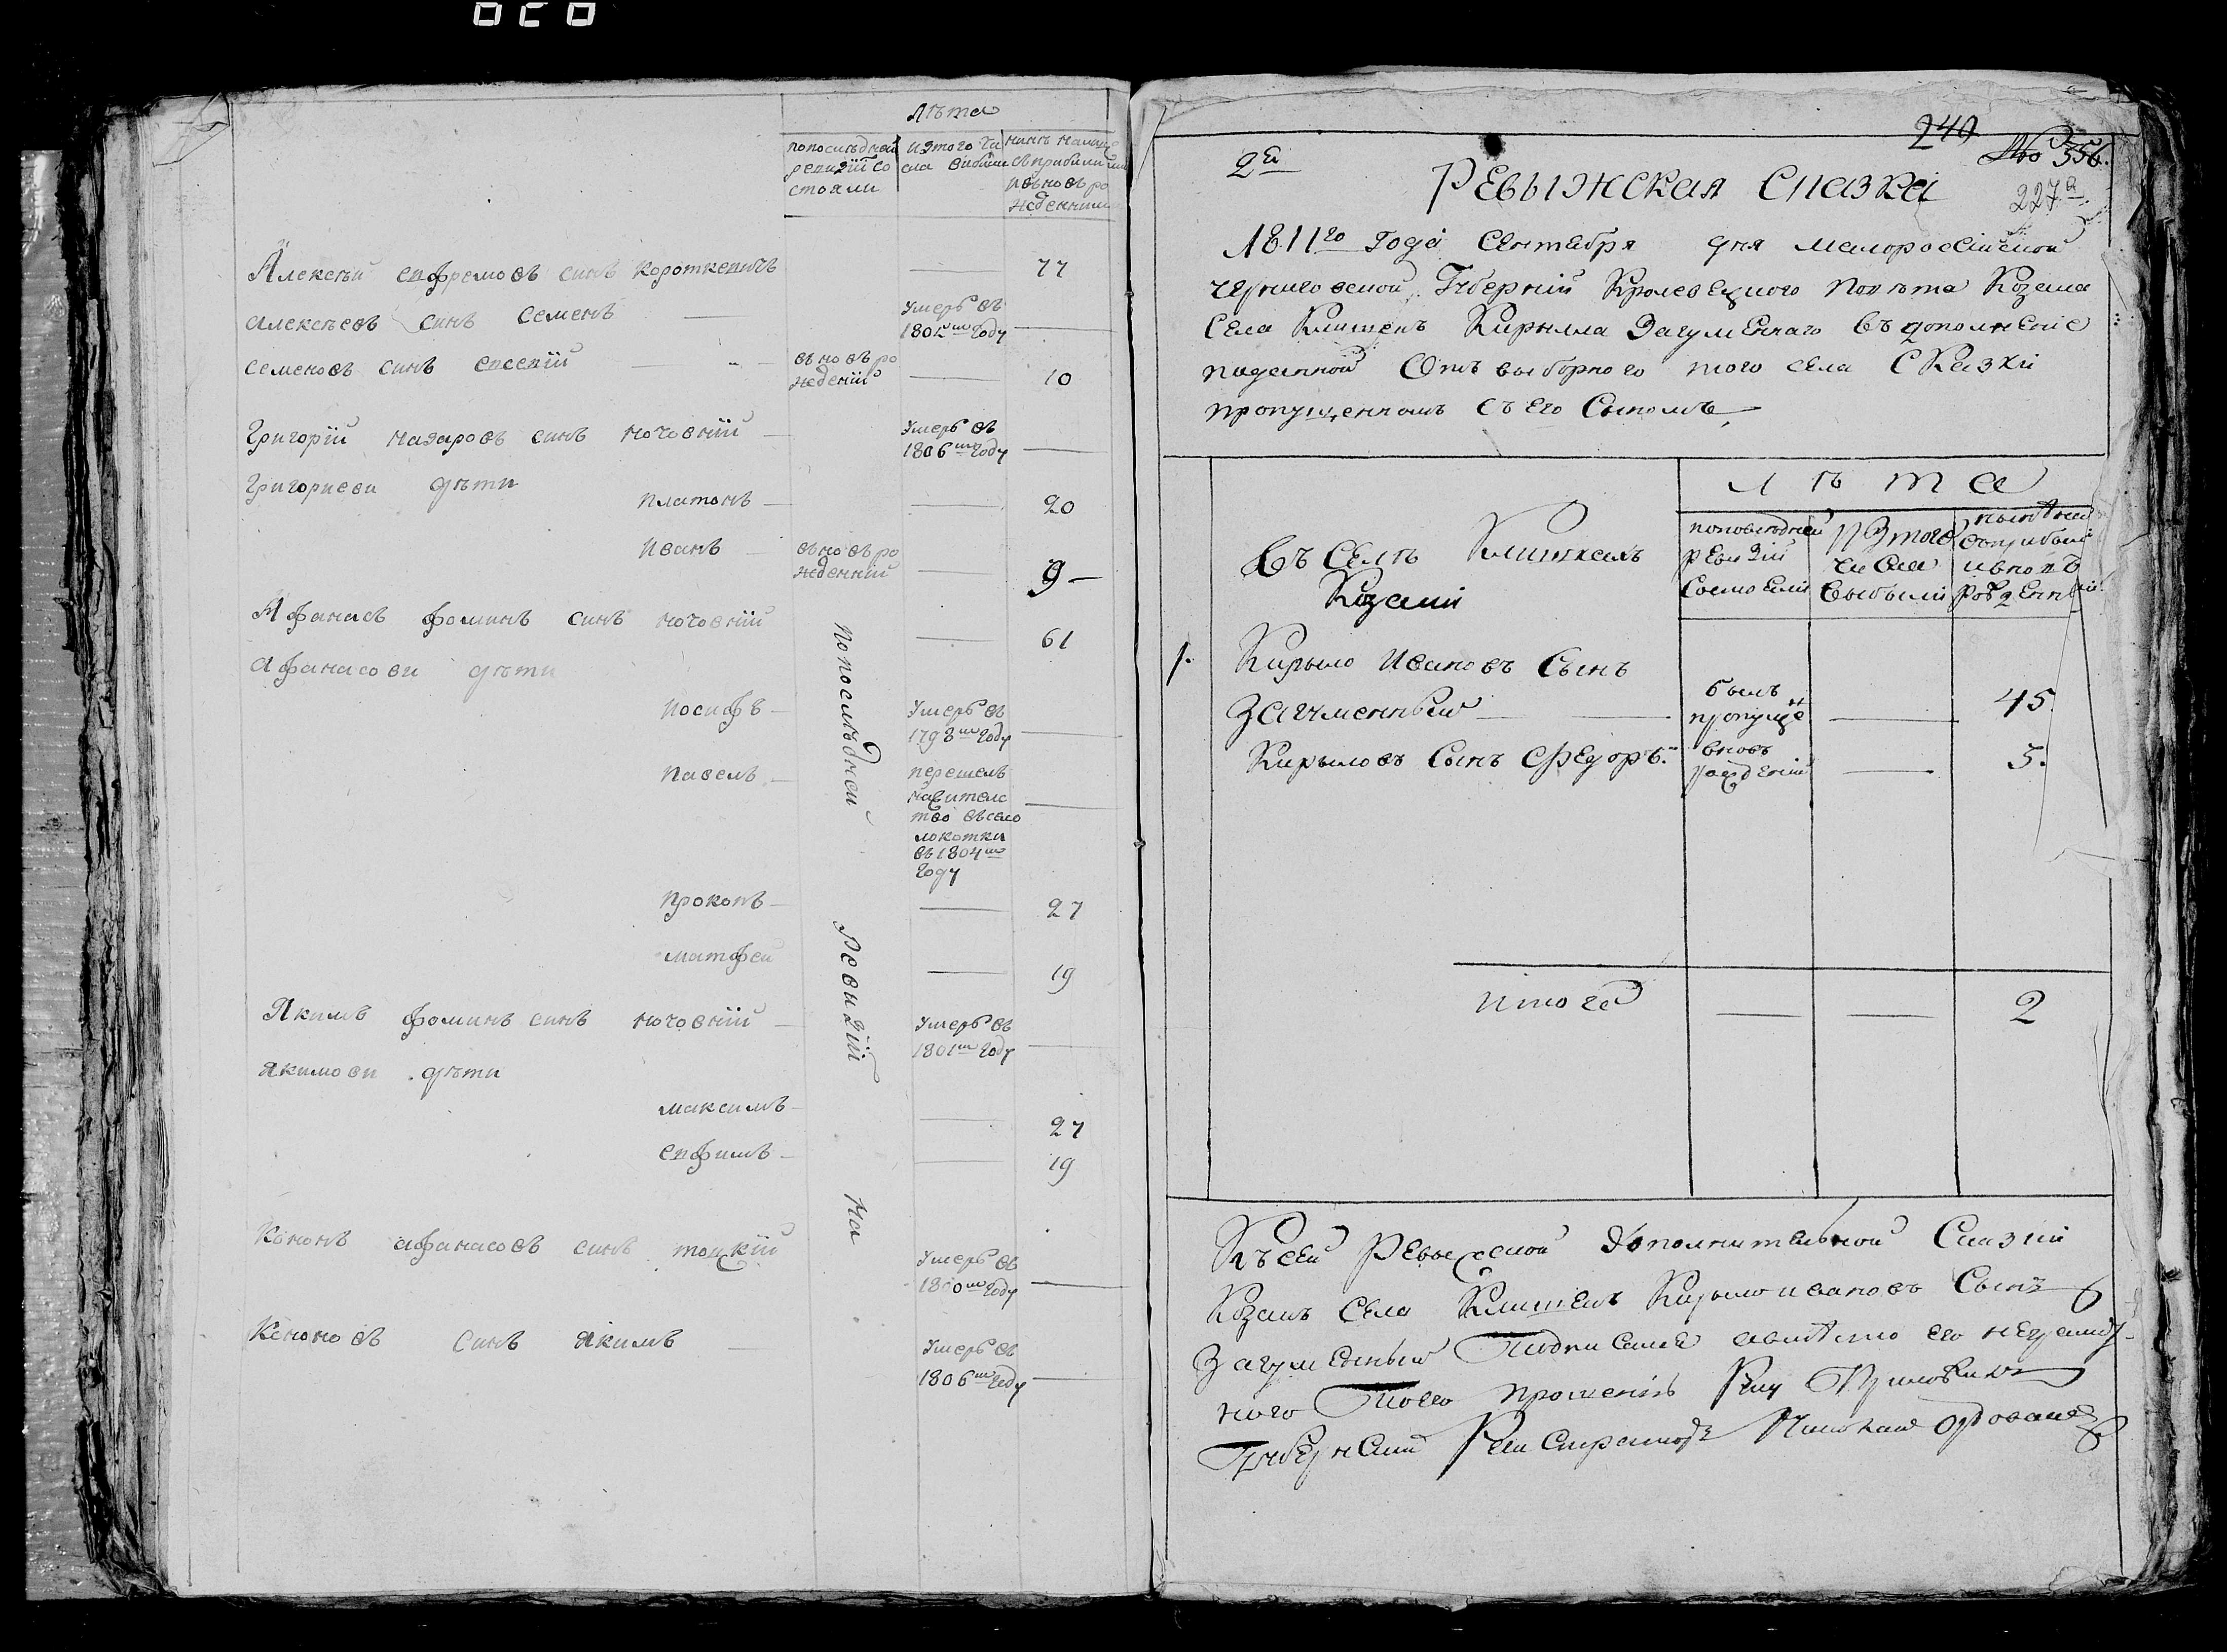 020
лѣта
попослѣдней
ревизіи со
стояли
изтого чи
сла выбили
нинѣ налиц
съприбилими
ивновъ ро
жденними
Алексѣй ефремовъ синъ Короткевичъ — 77
алексѣевъ синъ семенъ — Умерь въ
1802м году —
семеновъ синъ евсевій — вновъ ро
жденій — 10
Григорій назаровъ синъ ночовній — Умерь въ
1806м году —
Григориеви дѣти
платонъ — — 20
иванъ — вновъ ро
жденній — 9 —
Афанасъ фоминъ синъ ночовній — 61
афанасови дѣти
иосифъ — Умерь въ
1798м году —
павелъ — перешелъ
нажителс
тво въсело
локотки
въ1804м
году —
прокопъ — — 27
матфей — 19
Якимъ фоминъ синъ ночовній — Умерь въ
1801м году —
якимови дѣти
максимъ — — 27
ефимъ — — 19
Кононъ афанасовъ синъ тоцкій Умерь въ
1800м году —
Кононовъ синъ якимъ — Умерь въ
1806м году —
попослѣдней Ревизіи
240
№ 556.
227а
2й
Ревыжская Сказка
1811го Года Сентебря дня малоросеійской
черниговской Губерній Кролевецкого повѣта Козака
Села Клишекъ Кирылла Загуменнаго въ дополнение
поданной Отъ выборного того села Сказки
пропущенномъ съ Его Сыномъ
лѣта
Въ Селѣ Клишкахъ
Козаки
попослѣдней
ревизій
Состояли
Изтого
числа
выбыли
нынѣ
съприбыл
ивновъ
рожденны
1. Кирыло Ивановъ Сынъ
Загуменный — былъ
пропущен — 45
Кирыловъ Сынъ Федоръ. вновъ
рожденій — 5.
итого — — 2
Къ сей Ревыжской дополнительной Сказки
Козакъ Села Клишекъ Кирыло ивановъ Сынъ
Загуменный Подписался авмѣсто его неграмот-
ного Поего прошенію Руку Приложилъ
Губернский Регистраторъ